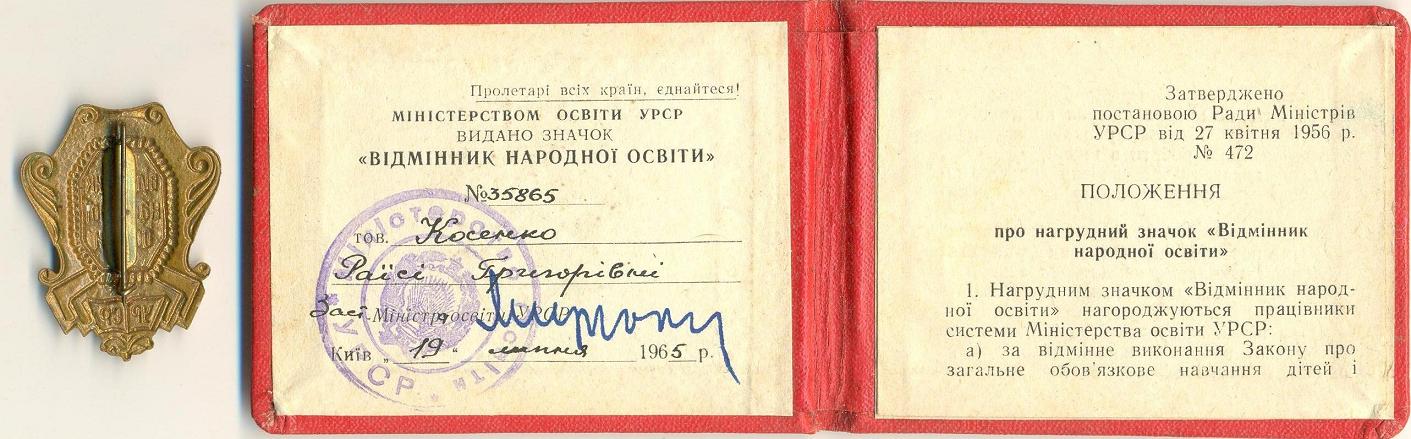 Пролетарі всіх країн, єднайтеся!
МІНІСТЕРСТВОМ ОСВІТИ УРСР
ВИДАНО ЗНАЧОК
«ВІДМІННИК НАРОДНОЇ ОСВІТИ»
№ 35865
тов. Косенко
Раїсі Григорівні
Заст. Міністра освіти УРСР
Київ „19“ липня 1965 р.
Затверджено
постановою Ради Міністрів
УРСР від 27 квітня 1956 р.
№ 472
ПОЛОЖЕННЯ
про нагрудний значок «Відмінник
народної освіти»
1. Нагрудним значком «Відмінник народ-
ної освіти» нагороджуються працівники
системи Міністерства освіти УРСР:
а) за відмінне виконання Закону про
загальне обов'язкове навчання дітей і